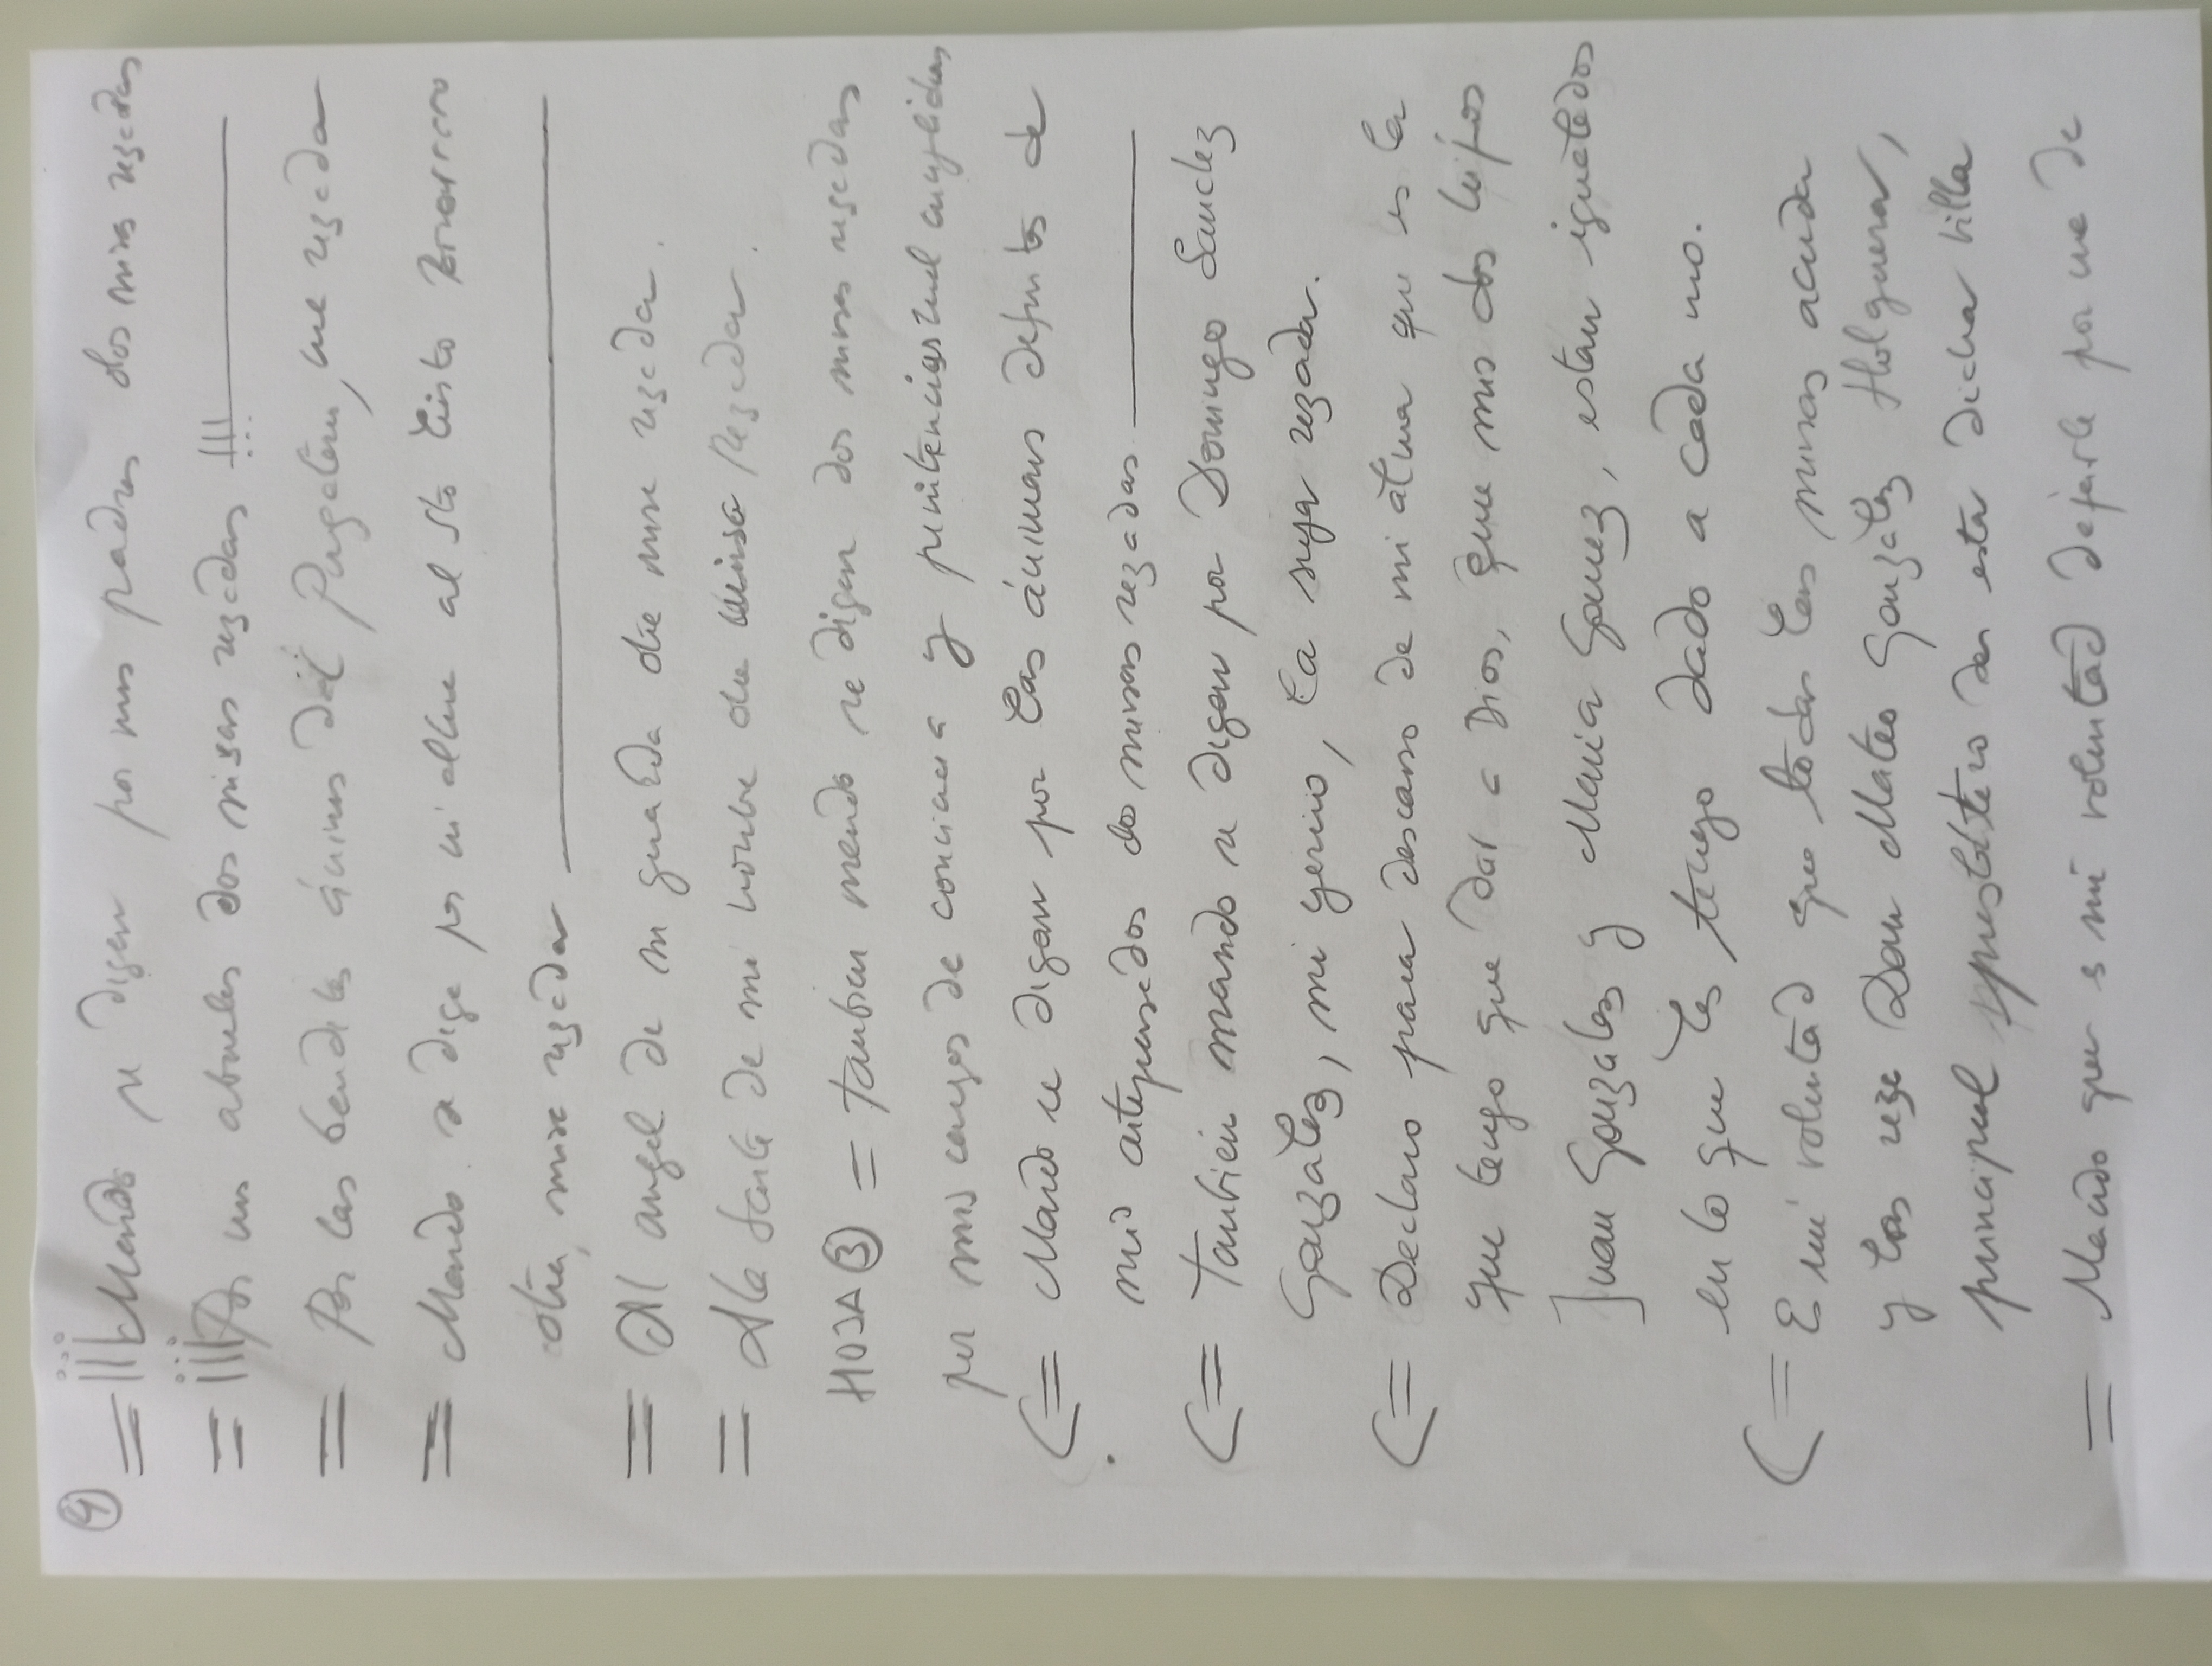 ④ = ¡¡¡Mando se digan por mis padres dos misas rezadas
= ¡¡¡Por mis abuelos dos misas rezadas !!!
= Por las benditas ánimas del Purgatorio, una rezada
= Mando se diga por mi alma al Sto Cristo
otra, misa rezada
= Al angel de mi guarda otra misa rezada.
= A la Santa de mi nombre otra misa Rezada.
HOJA ③ = tambien mando se digan dos misas rezadas
por mis cargos de conciencia y penitencias mal cumplidas
(= Mando se digan por las ánimas difuntas de
mis antepasados dos misas rezadas
(= También mando se digan por Domingo Sanchez
Gonzalez, mi yerno, la suya rezada.
(= Declaro para descanso de mi alma que es la
que tengo que dar a Dios, que mis dos hijos
Juan Gonzalez y Maria Gomez, estan igualados
en lo que les tengo dado a cada uno.
(= Es mi voluntad que todas las misas acuda
y las reze Don Mateo Gonzalez Holguera,
principal presbítero de esta dicha villa
= Mando que es mi voluntad dejarle por una de